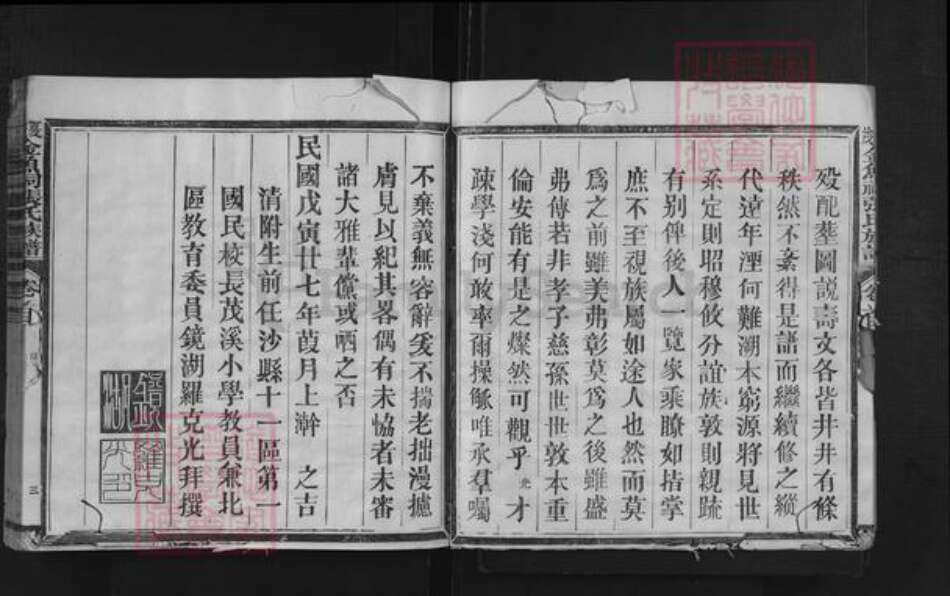 歿配塟圖説壽文各皆井井有條
秩然不紊得是譜而繼續修之縱
代遠年湮何難溯本窮源將見世
系定則昭穆攸分誼族敦則親䟽
有别俾後人一覽家乘瞭如指掌
庶不至視族屬如途人也然而莫
爲之前雖美弗彰莫爲之後雖盛
弗傳若非孝子慈孫世世敦本重
倫安能有是之燦然可觀乎光才
疎學淺何敢率爾操觚唯承羣囑
不棄義無容辭爰不揣老拙漫攄
膚見以紀其畧偶有未恊者未審
諸大雅輩儻或哂之否
民國戊寅廿七年葭月上澣 之吉
清附生前任沙縣十一區第一
國民校長茂溪小學教員兼北
區教育委員鏡湖羅克光拜撰
鏡湖
羅克光印
金魚祠張氏族譜 卷首 三